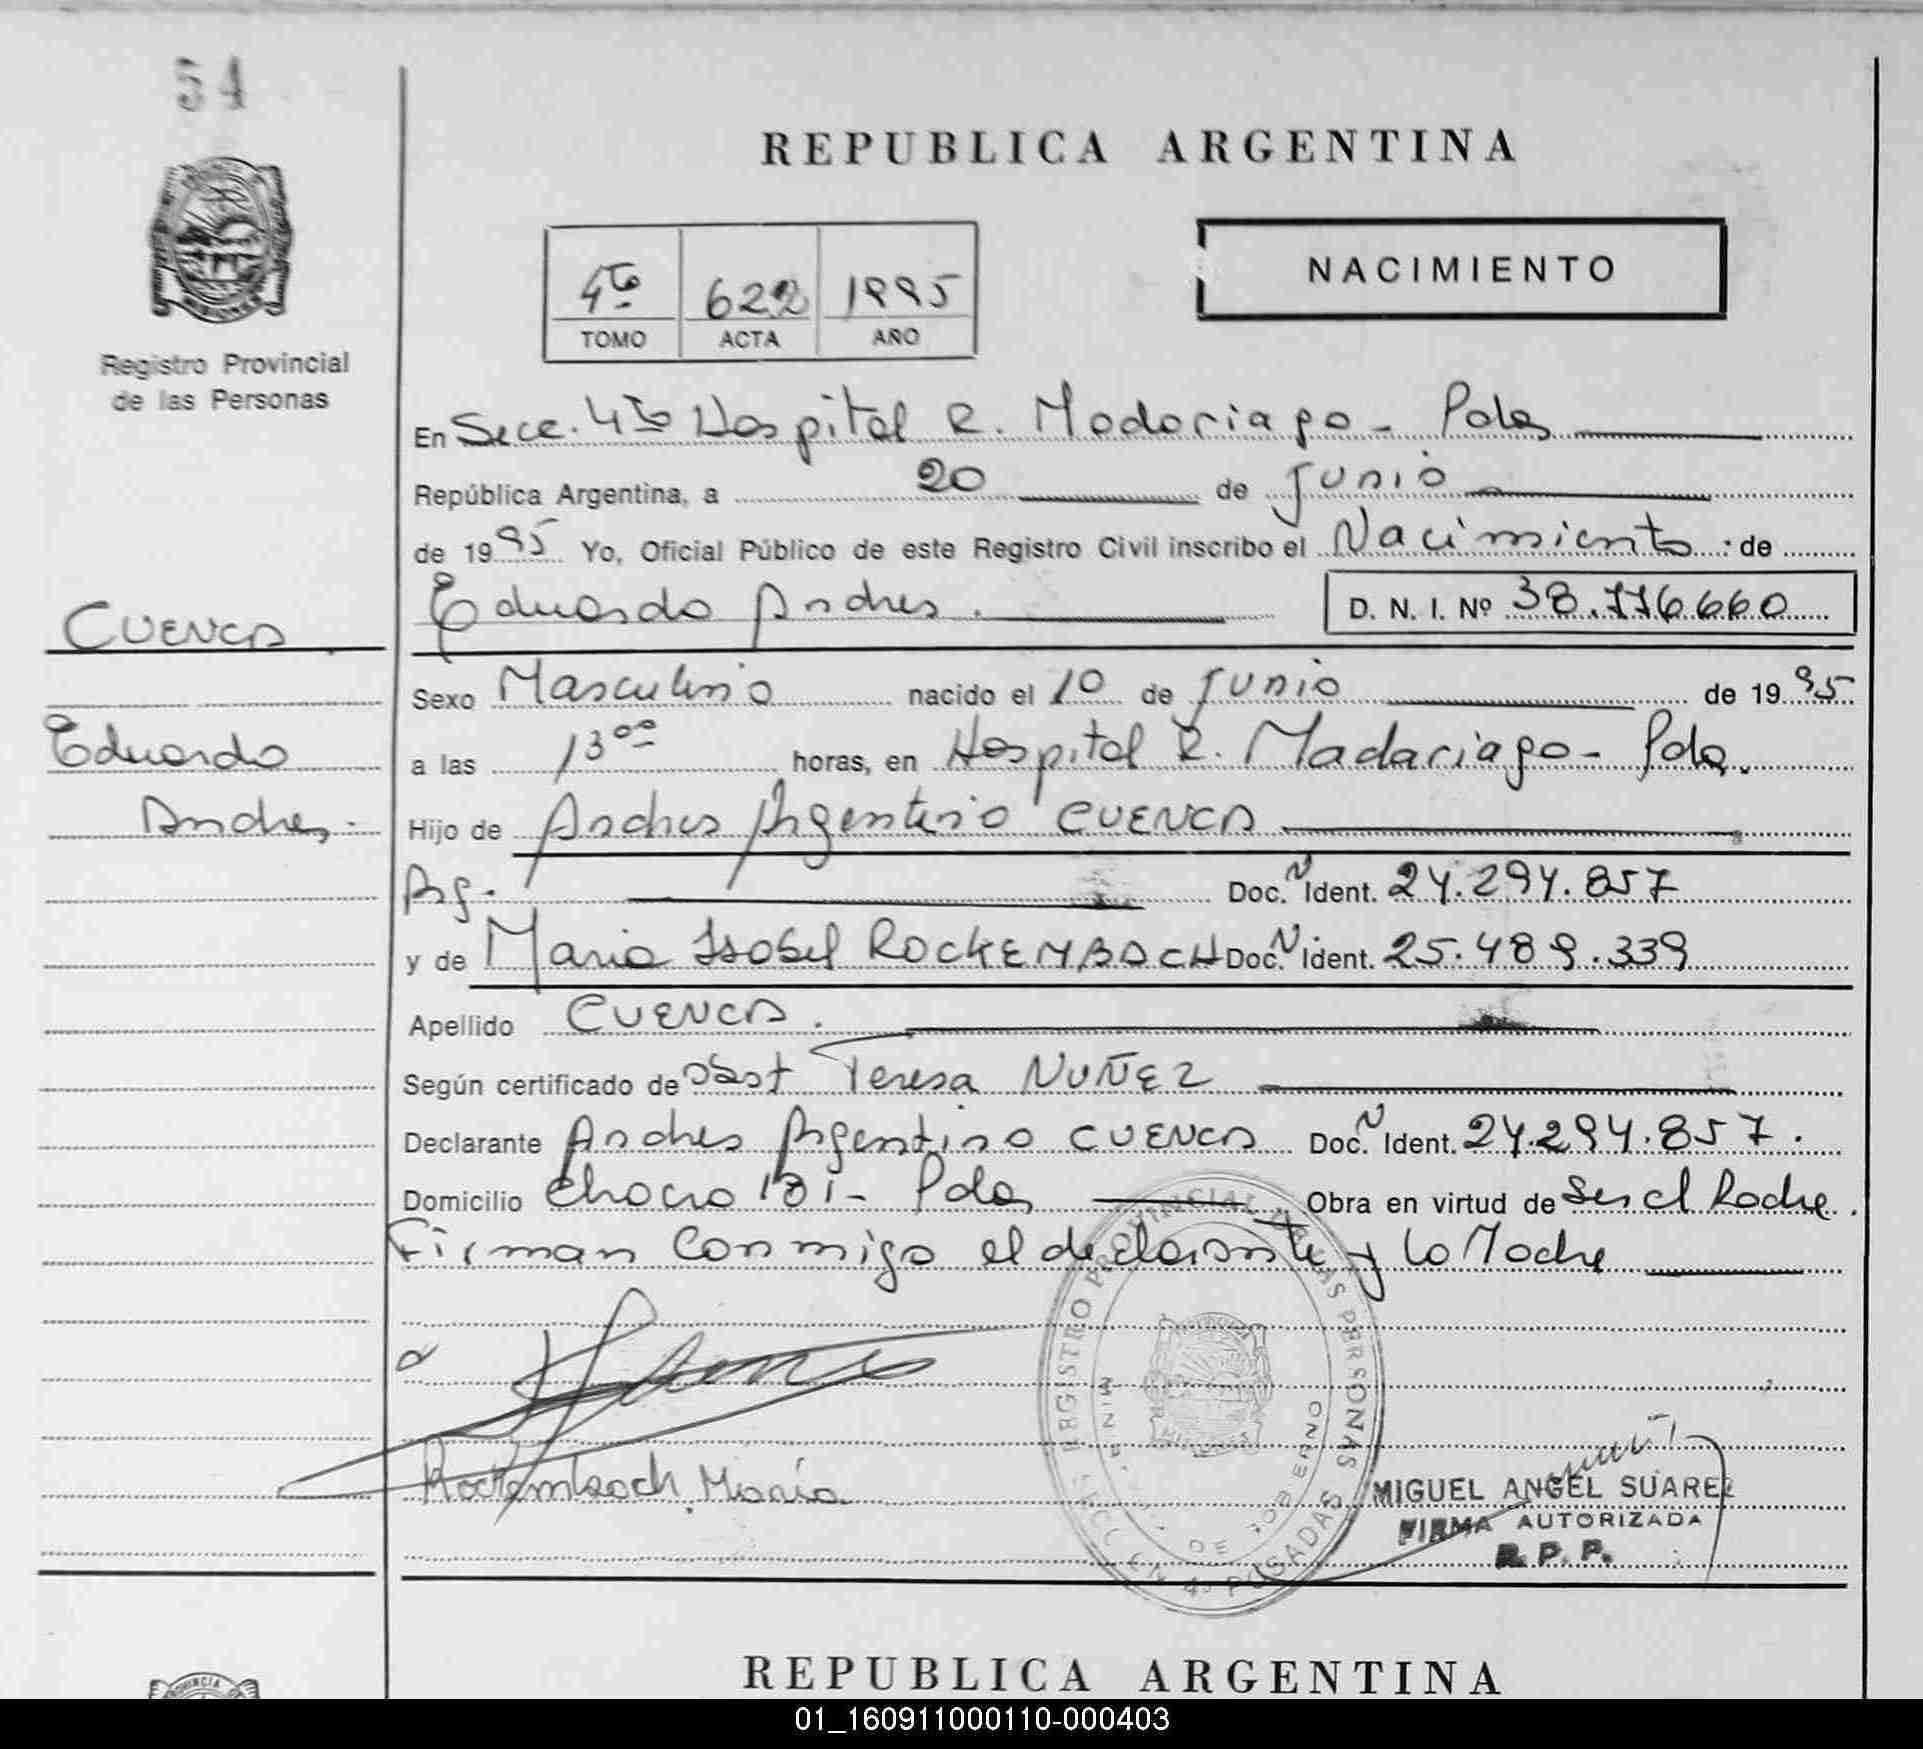 54
REPUBLICA ARGENTINA
NACIMIENTO
4to 622 1995
TOMO ACTA AÑO
Registro Provincial
de las Personas
En Secc. 4ta Hospital R. Madariaga - Pdas
República Argentina, a 20 de Junio
de 1995 Yo, Oficial Público de este Registro Civil inscribo el Nacimiento de
Eduardo Andres. D. N. I. Nº 38.776.660
CUENCA
Eduardo
Andres.
Sexo Masculino nacido el 10 de Junio de 1995
a las 13 oo horas, en Hospital R. Madariaga - Pdas.
Hijo de Andres Argentino CUENCA
Arg. Doc. N Ident. 24.294.857
y de Maria Isabel ROCKEMBACH Doc. N Ident. 25.489.339
Apellido CUENCA.
Según certificado de Obst Teresa NUÑEZ
Declarante Andres Argentino CUENCA Doc. N Ident. 24.294.857.
Domicilio Chaco 181 - Pdas Obra en virtud de Ser el Padre.
Firman Conmigo el declarante y la Madre
REGISTRO PROVINCIAL DE LAS PERSONAS
DE GOBIERNO
POSADAS
Rockembach Maria
MIGUEL ANGEL SUAREZ
FIRMA AUTORIZADA
R. P. P.
REPUBLICA ARGENTINA
01_160911000110-000403